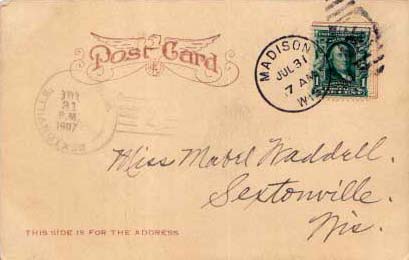 Post Card
MADISON
JUL 31
7 AM
WIS
SEXTONVILLE
JUL
31
P.M.
1907
Miss Mabel Waddell.
Sextonville,
Wis.
THIS SIDE IS FOR THE ADDRESS